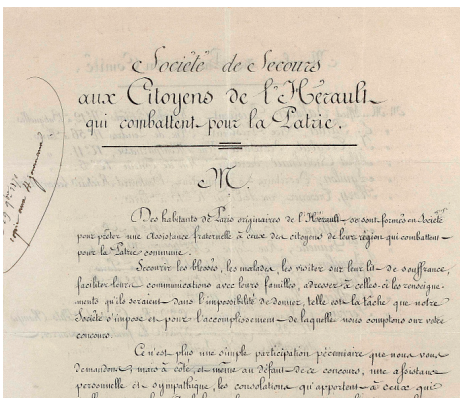 Société de Secours
aux Citoyens de l'Hérault
qui combattent pour la Patrie.
M.
Des habitants de Paris originaires de l'Hérault se sont formés en Société
pour prêter une assistance fraternelle à ceux des citoyens de leur région qui combattent
pour la Patrie commune.
Secourir les blessés, les malades, les visiter sur leur lit de souffrance,
faciliter leurs communications avec leurs familles, adresser à celles-ci les renseigne-
ments qu'ils seraient dans l'impossibilité de donner, telle est la tâche que notre
Société s'impose et pour l'accomplissement de laquelle nous comptons sur votre
concours.
Ce n'est plus une simple participation pécuniaire que nous vous
demandons, mais à côté, et même au défaut de ce concours, une assistance
personnelle et sympathique, les consolations qu'apportent à ceux qui